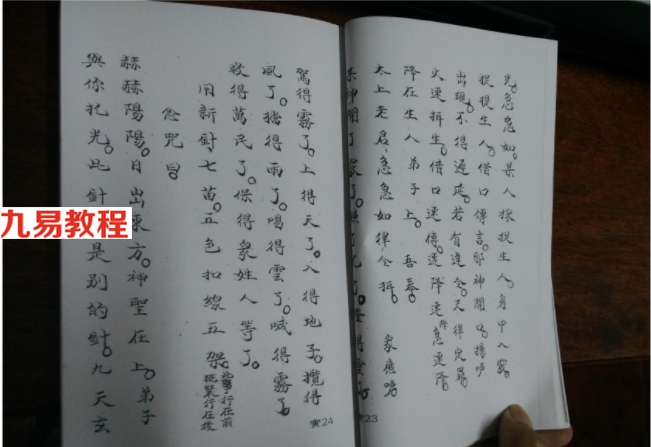 光。急急如。某人挨捉生人。身中入窍。
捉捉生人。借口傳言。邪神開口。揚哕
出現。不得遲延。若有違令。天律定罪。
火速抖生。借口速傳。速降速降。急速降
降在生人弟子上。吾奉。
太上老君。急急如律令抖。
象應哕
23
駕得霧了。上得天了。入得地了。攬得
風了。揽得雨了。喝得雲了。喊得霧了。
收得萬民了。保得衆姓人等了。
旧新針七苗。五色扣線五架。
行在前
行在後
念咒曰。
赫赫陽陽。日出東方。神聖在上。弟子
與你托光。此針是別的針。九天玄
24
九易教程